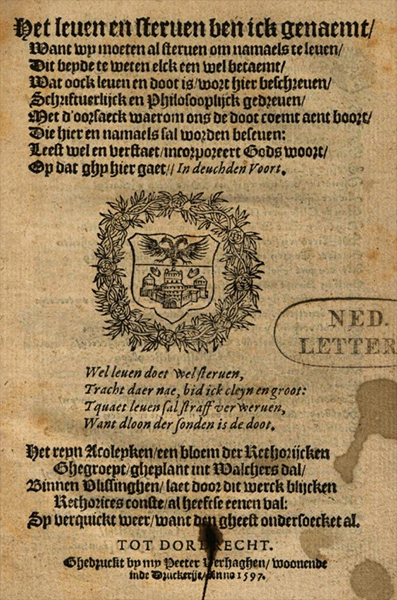 Het leuen en steruen ben ick genaemt/
Want wy moeten al steruen om namaels te leuen/
Dit beyde te weten elck een wel betaemt/
Wat oock leuen en doot is/wort hier beschreuen/
Schriftuerlijck en Philosooplijck gedreuen/
Met d'oorsaeck waerom ons de doot coemt aent boort/
Die hier en namaels sal worden beseuen:
Leest wel en verstaet/incorporeert Gods woort/
Op dat ghy hier gaet// In deuchden Voort.
NED.
LETTER
Wel leuen doet wel steruen,
Tracht daer nae, bid ick cleyn en groot:
Tquaet leuen sal straff verweruen,
Want dloon der sonden is de doot.
Het reyn Acoleyken/een bloem der Rethorijcken
Ghegroept/gheplant int Walchers dal/
Binnen Vlissinghen/laet door dit werck blijcken
Rethorices conste/al heeftse eenen val:
Sy verquickt weer/want den gheest ondersoecket al.
TOT DORDRECHT.
Ghedruckt by my Peeter Verhaghen/woonende
inde Druckerije/Anno 1597.